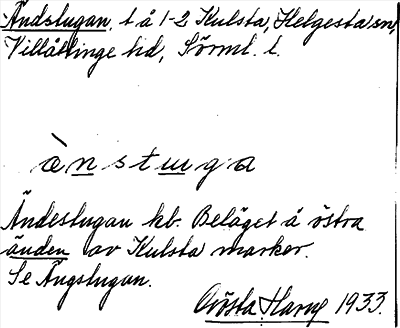 Ändstugan, t å 1-2 Kulsta, Helgesta sn,
Villåttinge hd, Sörml. l.
ànstuga
Ändestugan kb. Beläget å östra
änden av Kulsta marker.
Se Ängstugan.
Gösta Harng 1933.